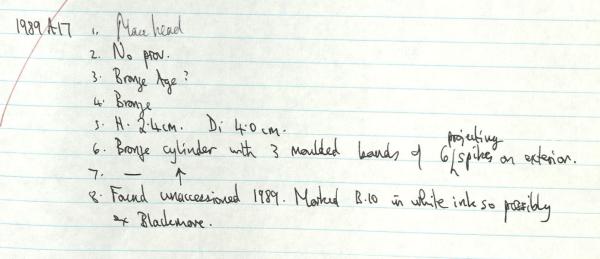 1989 A17 1. Mace head
2. No prov.
3. Bronze Age?
4. Bronze
5. H. 2.4cm. Di 4.0cm.
6. Bronze cylinder with 3 moulded bands of 6 projecting spikes on exterior.
7. — ↑
8. Found unaccessioned 1989. Marked B.10 in white ink so possibly
ex Blackmore.